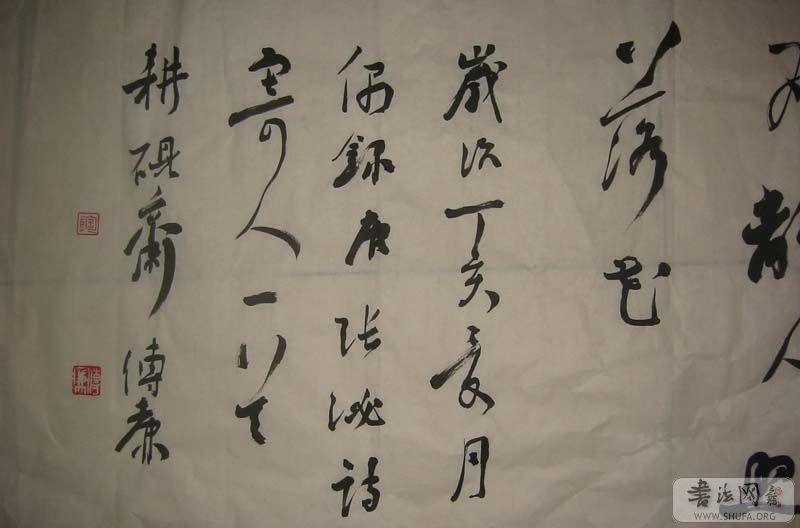 为離人照
落花
歲次丁亥夏月
偶錄唐张泌詩
寄人一首
耕砚齋
書法网
WWW.SHUFA.ORG